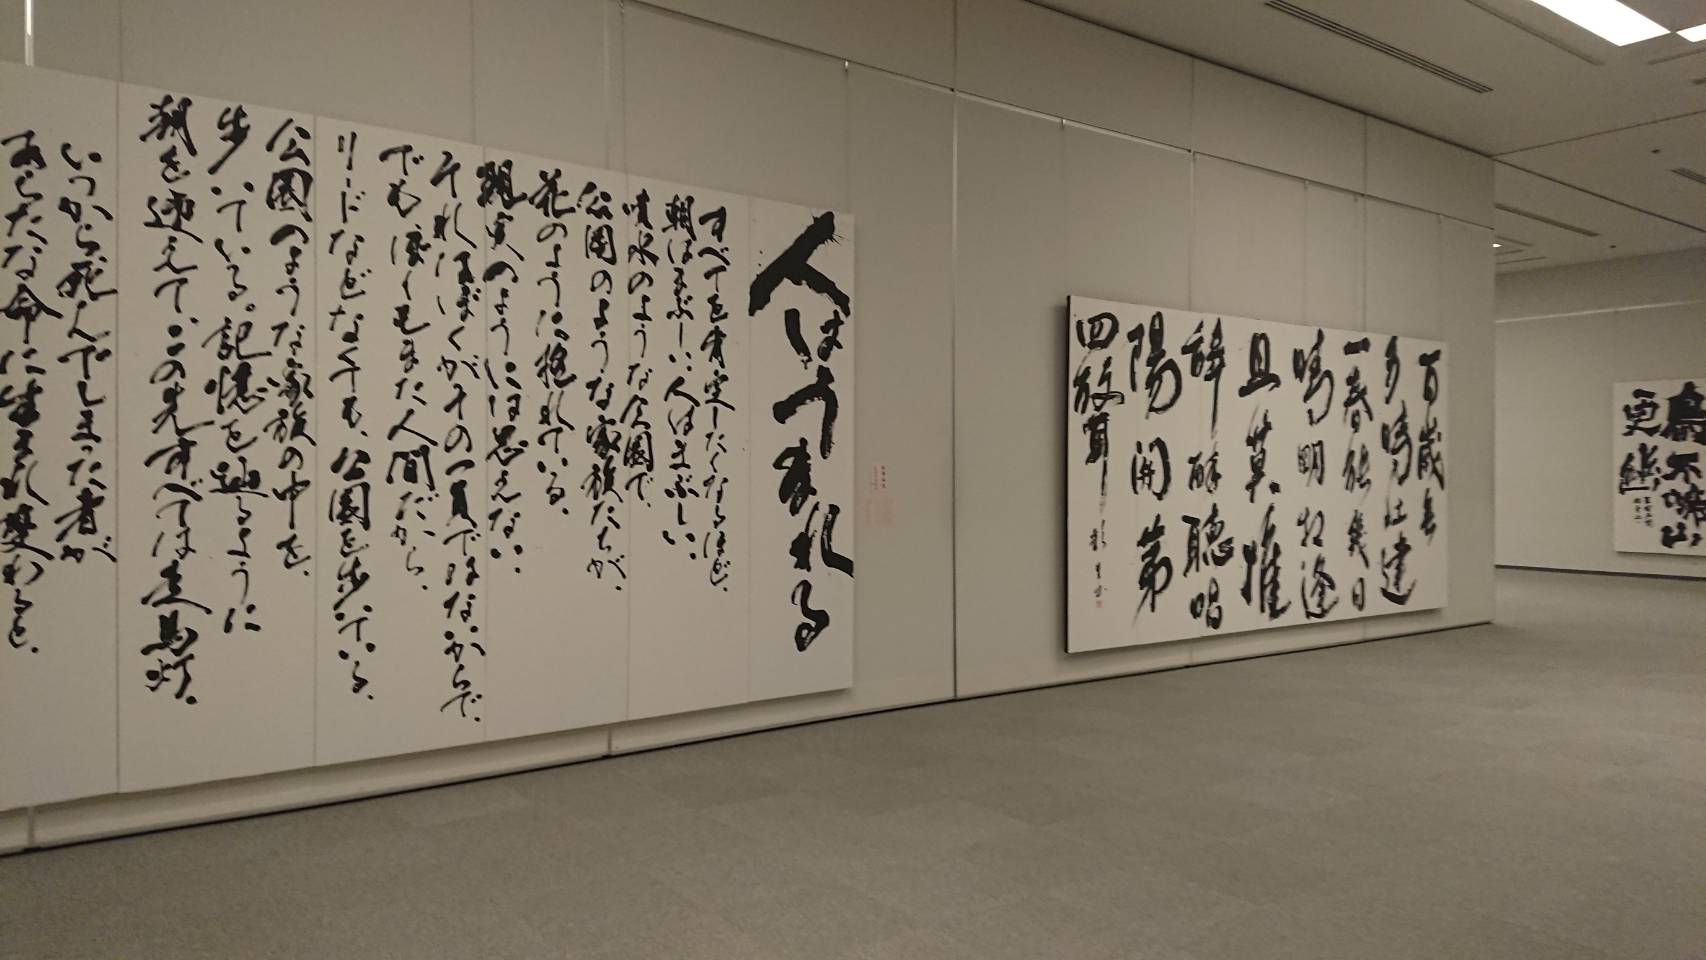 人はうまれる
すべてを青空したくなるほど、
朝はまぶしい、人はまぶしい、
噴水のような公園で、
公園のような家族たちが、
花のように揺れている。
現実のようには思えない、
それはぼくがその一員ではないからで、
でもくもまた人間だから、
リードなどなくても、公園を歩いている、
公園のような家族の中を、
歩いている。記憶を辿るように
朝を迎えて、この先すべては走馬灯。
いつから死んでしまった者が
あらたな命に生まれ変わると、
百歳無
多時壮健
一春能幾日
晴明相逢
且莫推
辞酔聴唱
陽関第
四声
鳥不啼山
更幽